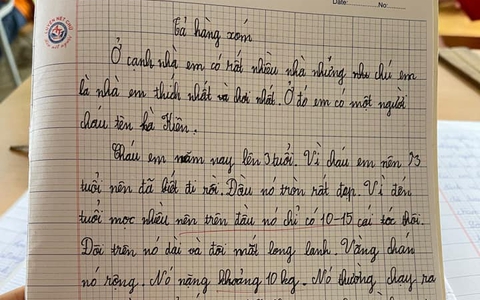 Date: No:
Tả hàng xóm
Ở cạnh nhà em có rất nhiều nhà nhưng nhà chú em
là nhà em thích nhất và chơi nhất. Ở đó em có một người
cháu tên hà Kiên.
Cháu em năm nay lên 3 tuổi. Vì cháu em nên 3
tuổi nên đã biết đi rồi. Đầu nó tròn rất đẹp. Vì đến
tuổi mọc nhiều nên trên đầu nó chỉ có 10-15 cái tóc thôi.
Đôi trên nó dài và đôi mắt long lanh. Vầng chán
nó rộng. Nó nặng khoảng 10 kg. Nó thường chạy ra